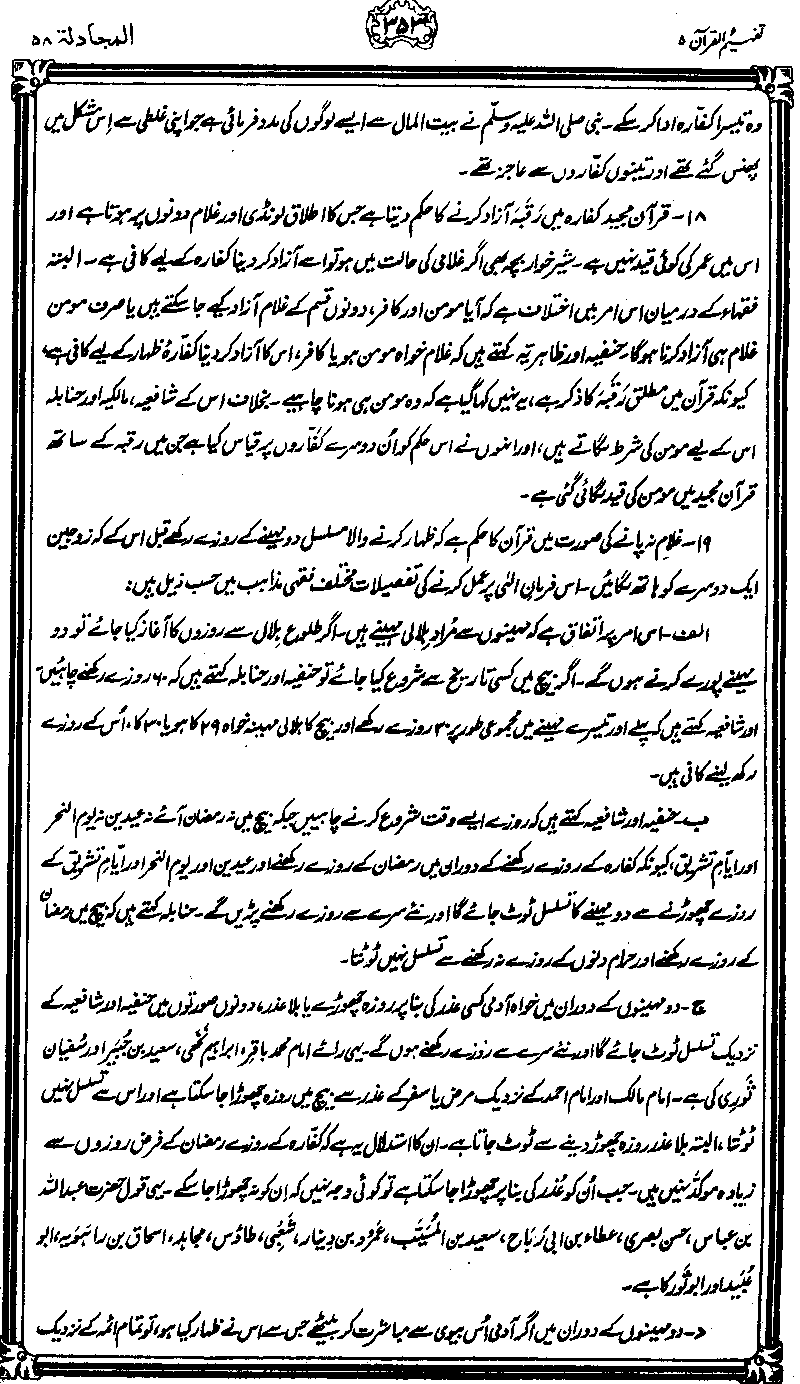 تفہیم القرآن ۵
۳۵۳
المجادلۃ ۵۸
وہ تیسرا کفّارہ ادا کر سکے۔ نبی صلی اللہ علیہ وسلّم نے بیت المال سے ایسے لوگوں کی مدد فرمائی ہے جو اپنی غلطی سے اِس مشکل میں
پھنس گئے تھے اور تینوں کفّاروں سے عاجز تھے۔
۱۸- قرآن مجید کفارہ میں رَقَبَہ آزاد کرنے کا حکم دیتا ہے جس کا اطلاق لونڈی اور غلام دونوں پر ہوتا ہے اور
اس میں عمر کی کوئی قید نہیں ہے۔ شیر خوار بچہ بھی اگر غلامی کی حالت میں ہو تو اسے آزاد کر دینا کفارہ کے لیے کافی ہے۔ البتہ
فقہاء کے درمیان اس امر میں اختلاف ہے کہ آیا مومن اور کافر، دونوں قسم کے غلام آزاد کیے جا سکتے ہیں یا صرف مومن
غلام ہی آزاد کرنا ہوگا۔ حنفیہ اور ظاہریہ کہتے ہیں کہ غلام خواہ مومن ہو یا کافر، اس کا آزاد کر دینا کفّارۂ ظہار کے لیے کافی ہے،
کیونکہ قرآن میں مطلق رَقَبَہ کا ذکر ہے، یہ نہیں کہا گیا ہے کہ وہ مومن ہی ہونا چاہیے۔ بخلاف اس کے شافعیہ، مالکیہ اور حنابلہ
اس کے لیے مومن کی شرط لگاتے ہیں، اور انہوں نے اس حکم کو اُن دوسرے کفّاروں پر قیاس کیا ہے جن میں رقبہ کے ساتھ
قرآن مجید میں مومن کی قید لگائی گئی ہے۔
۱۹- غلام نہ پانے کی صورت میں قرآن کا حکم ہے کہ ظہار کرنے والا مسلسل دو مہینے کے روزے رکھے قبل اس کے کہ زوجین
ایک دوسرے کو ہاتھ لگائیں۔ اس فرمانِ الٰہی پر عمل کرنے کی تفصیلات مختلف فقہی مذاہب میں حسب ذیل ہیں:
الف- اس امر پر اتفاق ہے کہ مہینوں سے مُراد ہلالی مہینے ہیں۔ اگر طلوعِ ہلال سے روزوں کا آغاز کیا جائے تو دو
مہینے پورے کرنے ہوں گے۔ اگر بیچ میں کسی تاریخ سے شروع کیا جائے تو حنفیہ اور حنابلہ کہتے ہیں کہ ۶۰ روزے رکھنے چاہئیں۔
اور شافعیہ کہتے ہیں کہ پہلے اور تیسرے مہینے میں مجموعی طور پر ۳۰ روزے رکھے اور بیچ کا ہلالی مہینہ خواہ ۲۹ کا ہو یا ۳۰ کا، اُس کے روزے
رکھ لینے کافی ہیں۔
ب- حنفیہ اور شافعیہ کہتے ہیں کہ روزے ایسے وقت شروع کرنے چاہییں جبکہ بیچ میں نہ رمضان آئے نہ عیدین نہ یوم النحر
اور ایّامِ تشریق، کیونکہ کفارہ کے روزے رکھنے کے دوران میں رمضان کے روزے رکھنے اور عیدین اور یوم النحر اور ایّامِ تشریق کے
روزے چھوڑنے سے دو مہینے کا تسلسل ٹوٹ جائے گا اور نئے سرے سے روزے رکھنے پڑیں گے۔ حنابلہ کہتے ہیں کہ بیچ میں رمضان
کے روزے رکھنے اور حرام دنوں کے روزے نہ رکھنے سے تسلسل نہیں ٹوٹتا۔
ج- دو مہینوں کے دوران میں خواہ آدمی کسی عذر کی بنا پر روزہ چھوڑے یا بلا عذر، دونوں صورتوں میں حنفیہ اور شافعیہ کے
نزدیک تسلسل ٹوٹ جائے گا اور نئے سرے سے روزے رکھنے ہوں گے۔ یہی رائے امام محمد باقر، ابراہیم نَخَعی، سعید بن جُبَیر اور سُفیان
ثَوری کی ہے۔ امام مالک اور امام احمد کے نزدیک مرض یا سفر کے عذر سے بیچ میں روزہ چھوڑا جا سکتا ہے اور اس سے تسلسل نہیں
ٹوٹتا، البتہ بلا عذر روزہ چھوڑ دینے سے ٹوٹ جاتا ہے۔ ان کا استدلال یہ ہے کہ کفارہ کے روزے رمضان کے فرض روزوں سے
زیادہ موکّد نہیں ہیں۔ جب اُن کو عُذر کی بنا پر چھوڑا جا سکتا ہے تو کوئی وجہ نہیں کہ اِن کو نہ چھوڑا جا سکے۔ یہی قول حضرت عبداللہ
بن عباس، حسن بصری، عطاء بن ابی رَبَاح، سعید بن المُسَیَّب، عَمرو بن دِینار، شَعبی، طاؤس، مجاہد، اسحاق بن راہَوَیہ، ابو
عُبَید اور ابو ثَور کا ہے۔
د- دو مہینوں کے دوران میں اگر آدمی اُس بیوی سے مباشرت کر بیٹھے جس سے اس نے ظہار کیا ہو، تو تمام ائمہ کے نزدیک